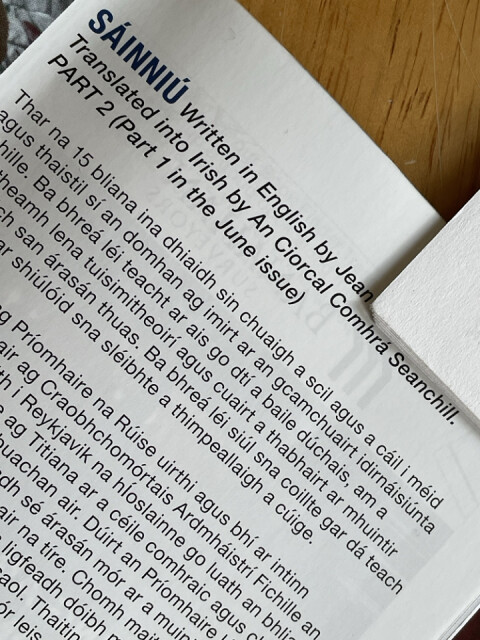 SÁINNIÚ Written in English by Jean
Translated into Irish by An Ciorcal Comhrá Seanchill.
PART 2 (Part 1 in the June issue)
Thar na 15 bliana ina dhiaidh sin chuaigh a scil agus a cáil i méid
agus thaistil sí an domhan ag imirt ar an gcamchuairt idirnáisiúnta
hille. Ba bhreá léi teacht ar ais go dtí a baile dúchais, am a
theamh lena tuismitheoirí agus cuairt a thabhairt ar mhuintir
ch san árasán thuas. Ba bhreá léi siúl sna coillte gar dá teach
ar shiúlóid sna sléibhte a thimpeallaigh a cúige.
ag Príomhaire na Rúise uirthi agus bhí ar intinn
air ag Craobhchomórtais Ardmháistrí Fichille an
th i Reykjavik na hÍoslainne go luath an bhli
e ag Titiana ar a céile comhraic agus c
buachan air. Dúirt an Príomhaire
adh sé árasán mór ar a muin
air na tíre. Chomh mait
ligfeadh dóibh
saol. Thaitin
ór leis